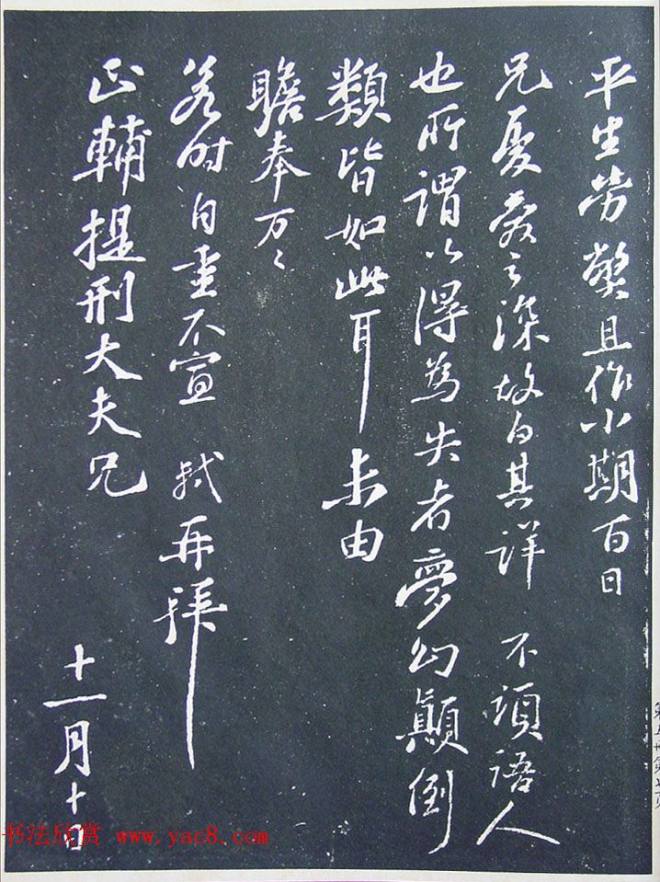 平生勞弊且作小期百日
兄憂愛之深故白其詳 不須語人
也所謂以得為失者夢幻顛倒
類皆如此耳 未由
瞻奉万〻
若时自重不宣 軾再拜
正輔提刑大夫兄
十一月十日
书法欣赏 www.yac8.com